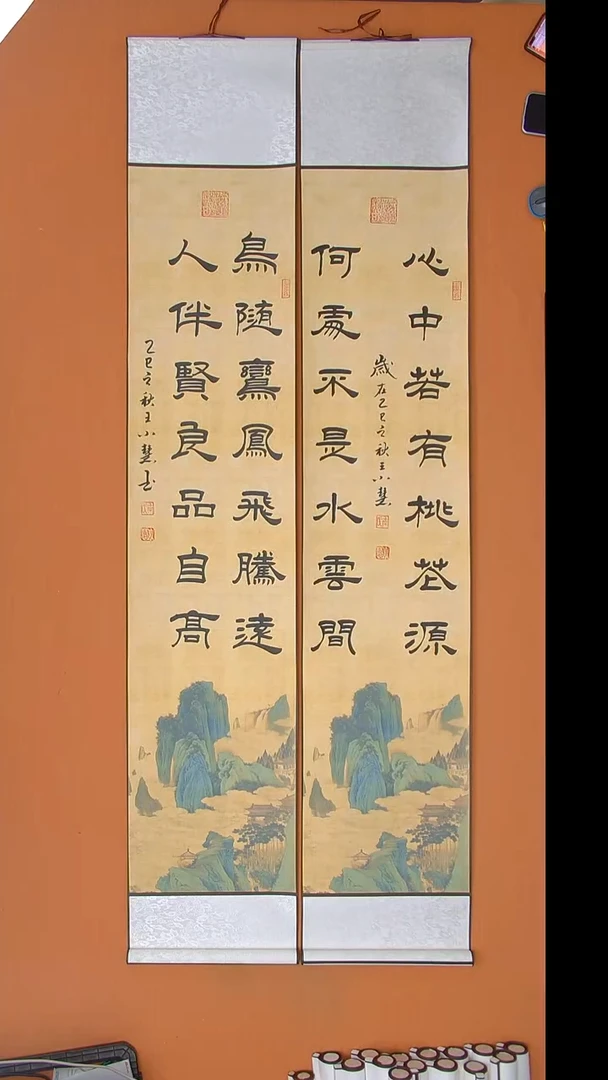 心中若有桃花源
何處不是水雲間
歲在乙巳之秋王小慧
鳥隨鸞鳳飛騰遠
人伴賢良品自高
乙巳之秋王小慧書